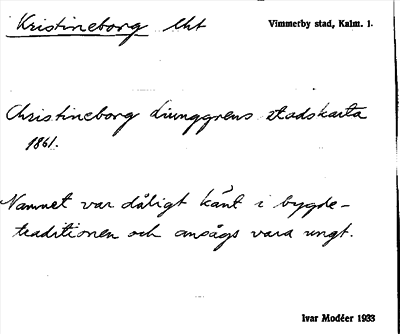 Kristineborg lht
Vimmerby stad, Kalm. l.
Christineborg Ljunggrens stadskarta
1861.
Namnet var dåligt känt i bygde-
traditionen och ansågs vara ungt.
Ivar Modéer 1933